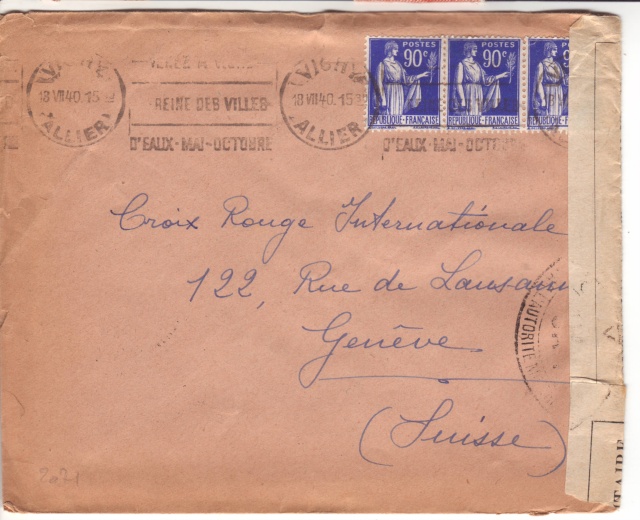 VICHY
18 VII 40. 15
ALLIER
REINE DES VILLES
D'EAUX-MAI-OCTOBRE
VICHY
18 VII 40. 15 35
ALLIER
D'EAUX-MAI-OCTOBRE
POSTES 90c
REPUBLIQUE-FRANÇAISE
POSTES 90c
REPUBLIQUE-FRANÇAISE
POSTES 9
REPUBLIQUE-FRANÇ
Croix Rouge Internationale
122, Rue de Lausann
Genève
(Suisse)
L'AUTORITE
TAIRE
2071